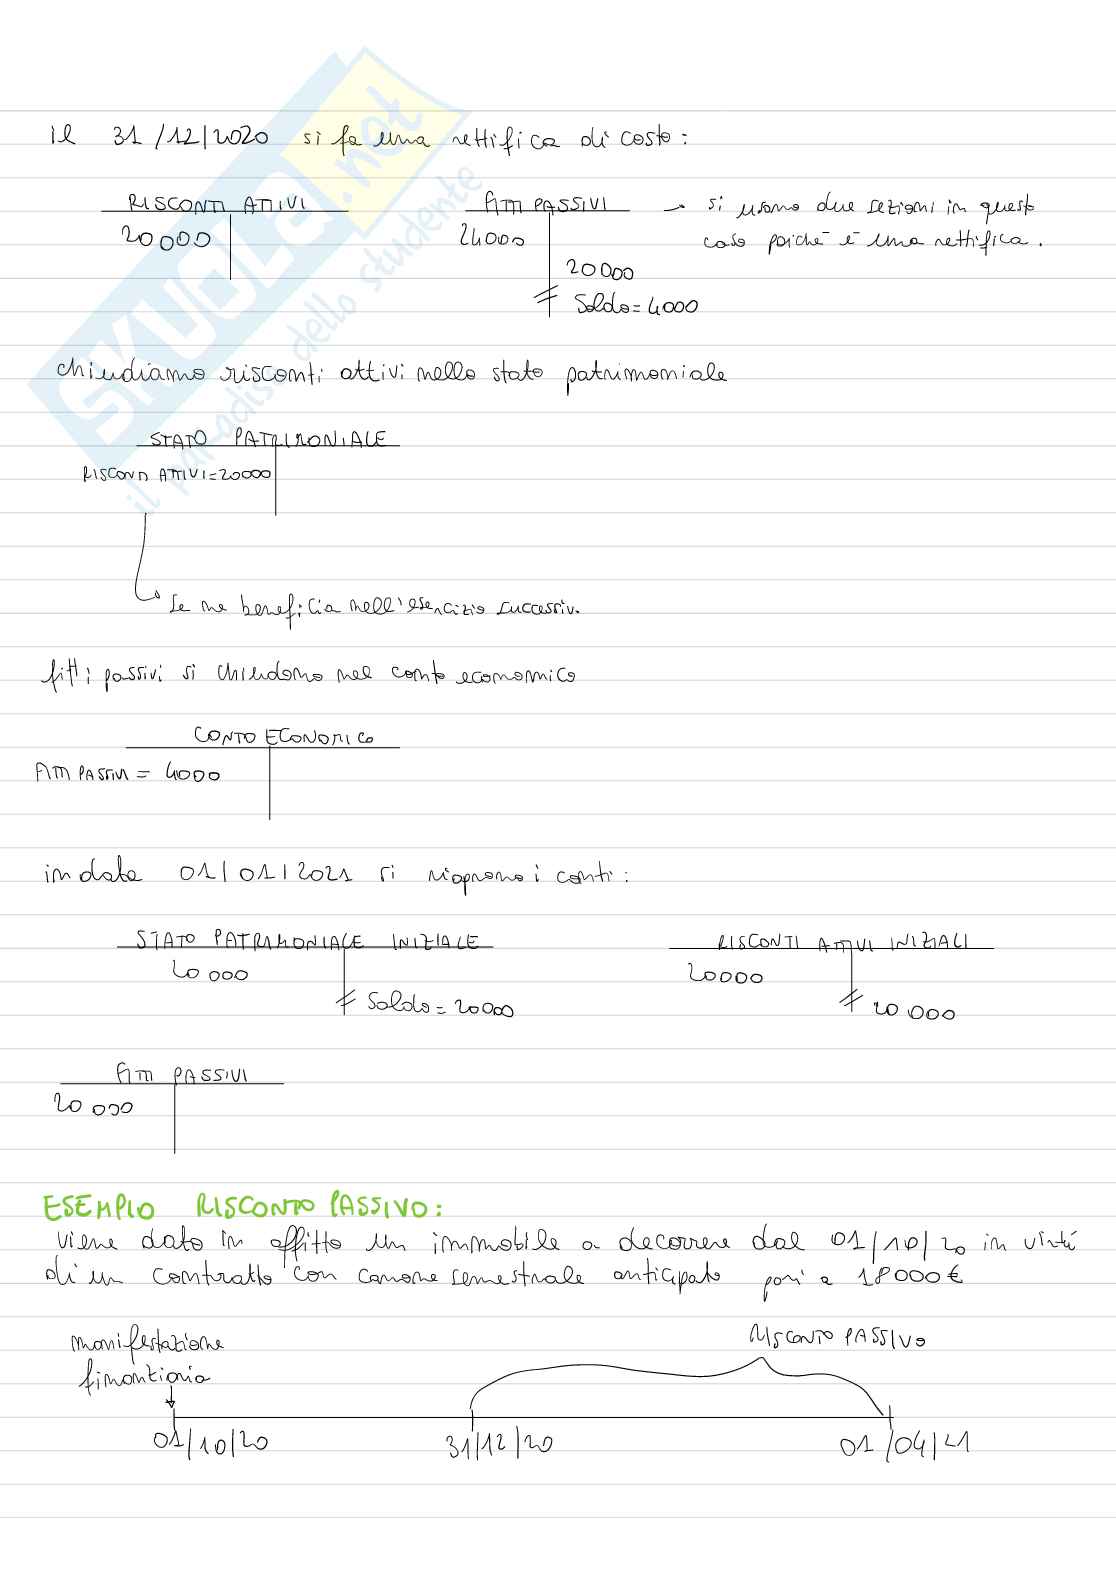 il 31/12/2020 si fa una rettifica di costo:
RISCONTI ATTIVI
20000
FITTI PASSIVI
24000
20000
Saldo=4000
→ si usano due sezioni in questo
caso poiché è una rettifica.
chiudiamo risconti attivi nello stato patrimoniale
STATO PATRIMONIALE
RISCONTI ATTIVI=20000
se ne beneficia nell'esercizio successivo.
fitti passivi si chiudono nel conto economico
CONTO ECONOMICO
FITTI PASSIVI = 4000
in data 01/01/2021 si riaprono i conti:
STATO PATRIMONIALE INIZIALE
20 000
Saldo=20000
RISCONTI ATTIVI INIZIALI
20000
20 000
FITTI PASSIVI
20 000
ESEMPIO RISCONTO PASSIVO:
viene dato in affitto un immobile a decorrere dal 01/10/20 in virtù
di un contratto con canone semestrale anticipato pari a 18000€
manifestazione
finanziaria
RISCONTO PASSIVO
01/10/20
31/12/20
01/04/21
SKUOLA.net
il paradiso dello studente